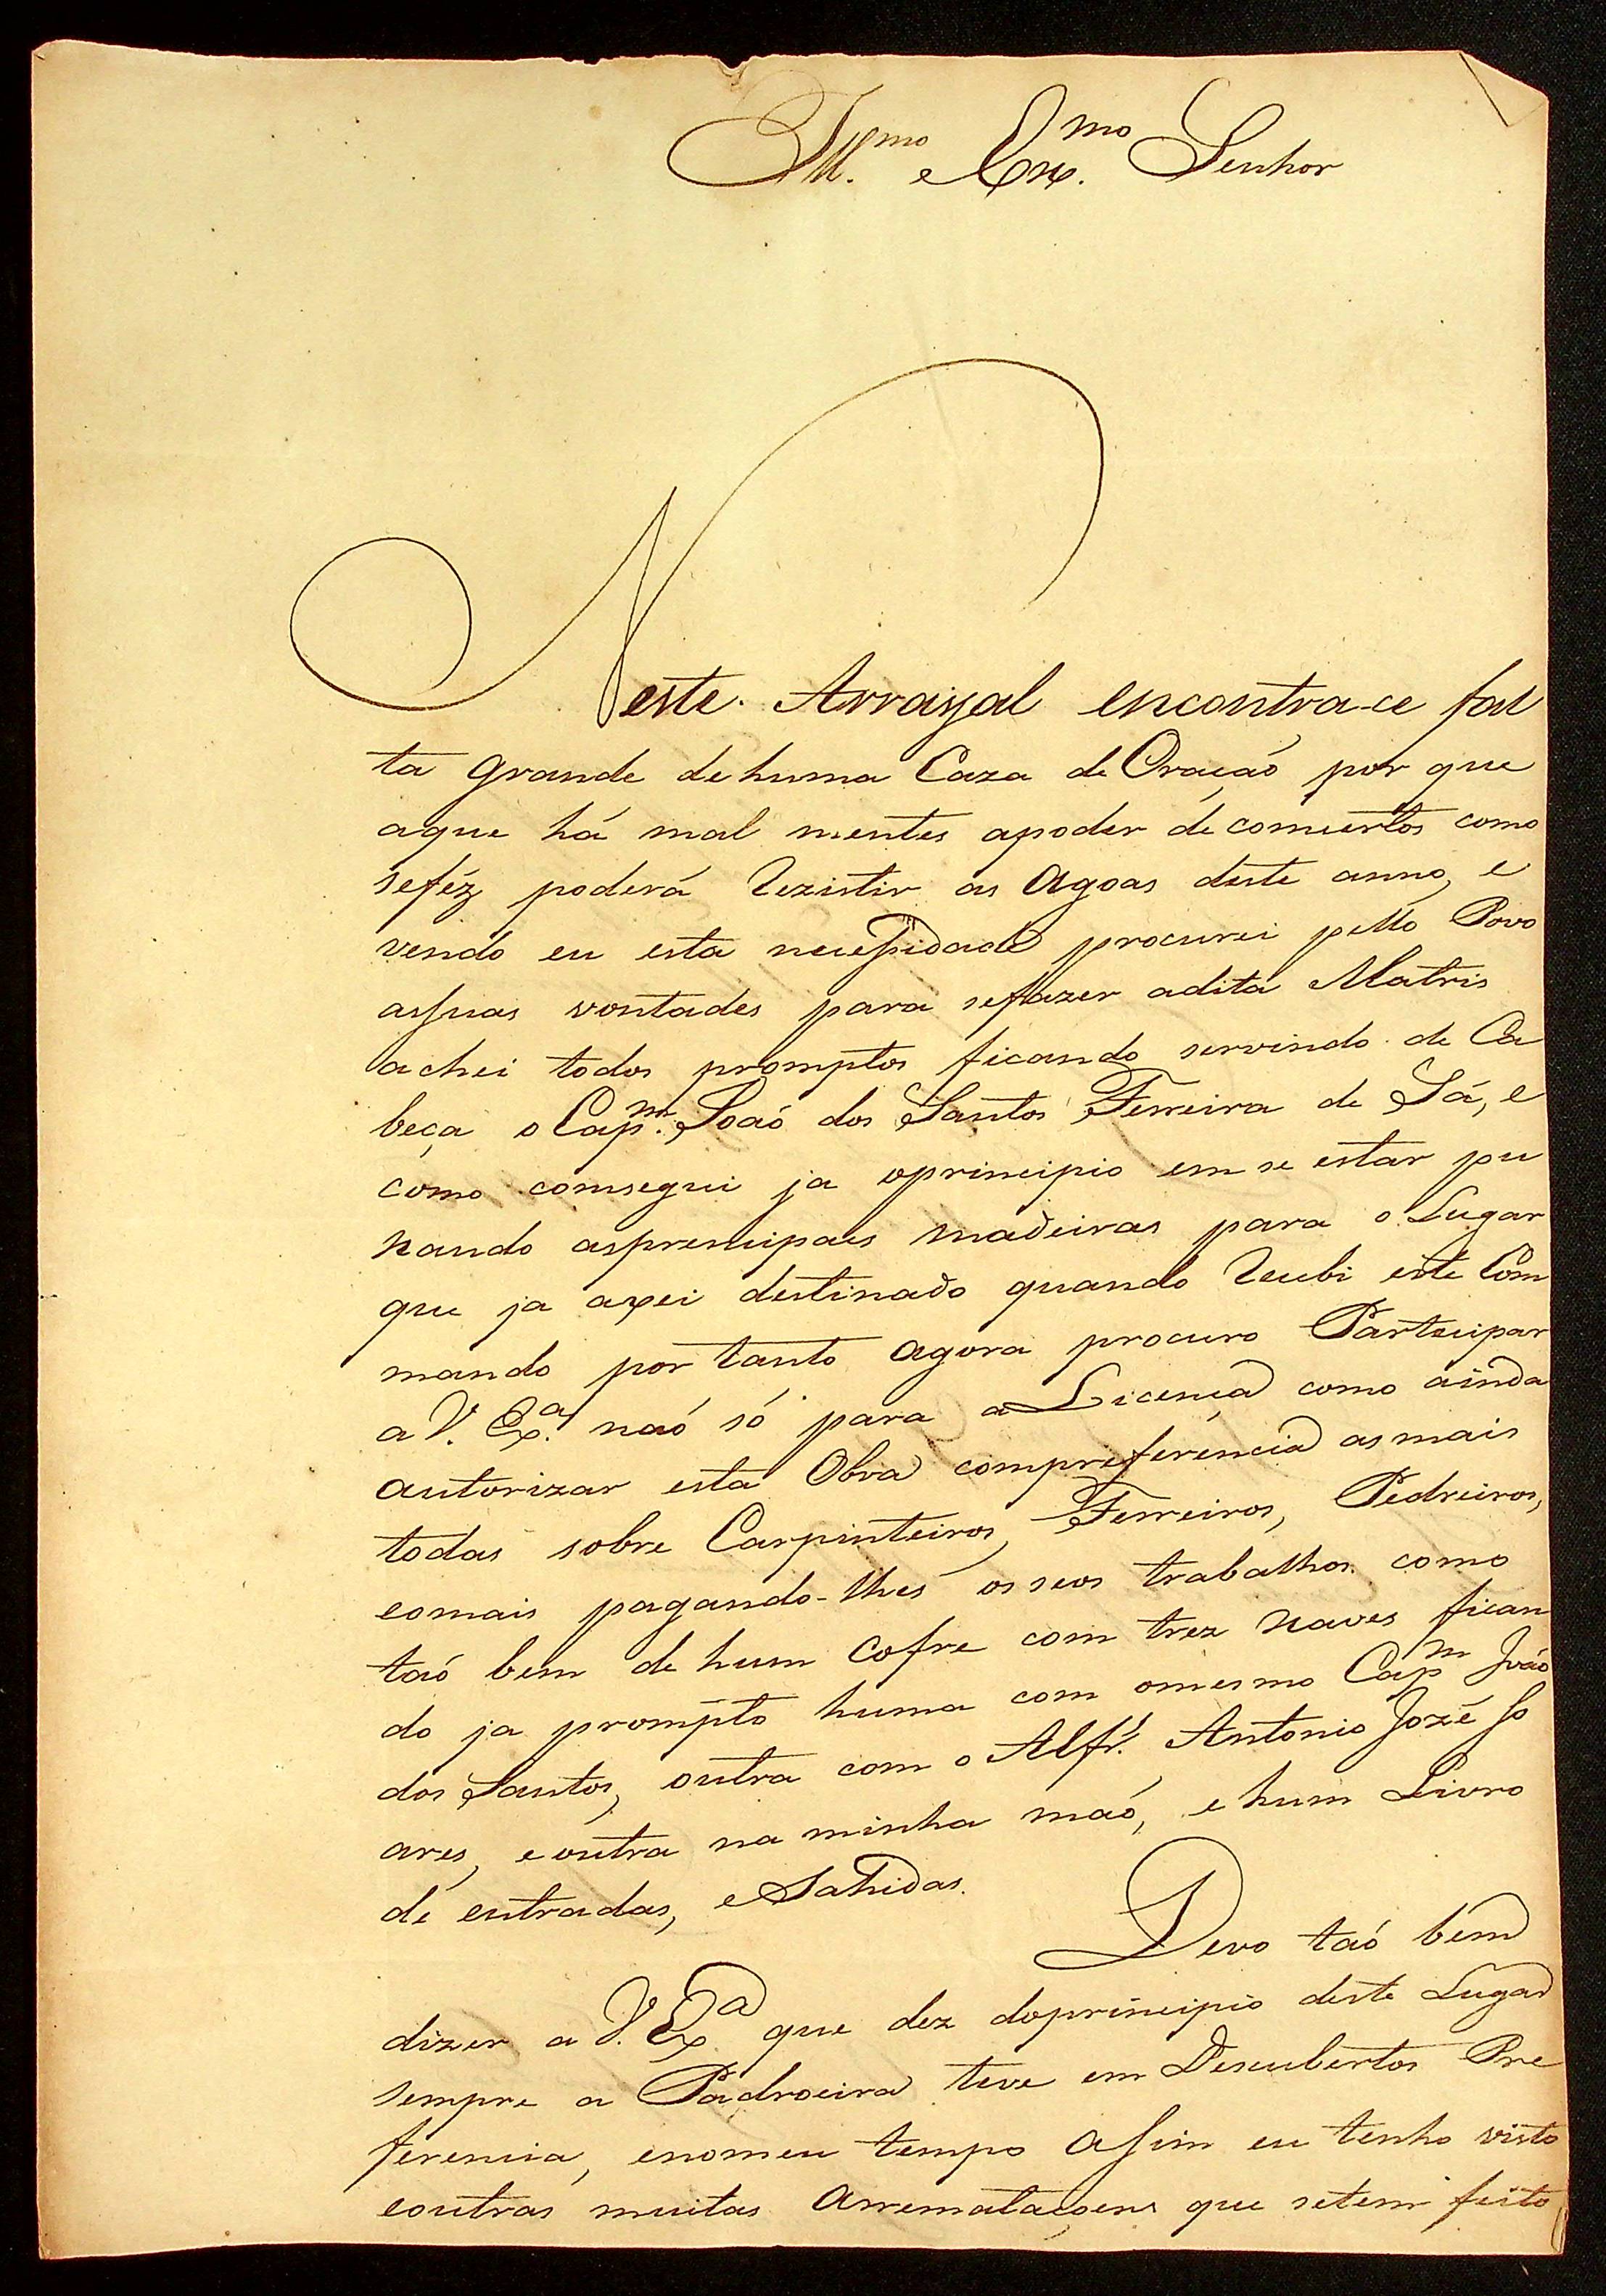 Ill.mo e Exm.mo Senhor
Neste Arrayal encontra-ce fal
ta grande de huma Caza de Oraçaó por que
aque há mal mentes apoder de comsertos como
sefêz poderá Rezistir as agoas deste anno, e
vendo eu esta necessidade procurei pello Povo
assuas vontades para sefazer adita Matris
achei todos promptos ficando servindo de Ca
beça o Cap.m Joaó dos Santos Ferreira de Sá, e
como comsegui ja oprincipio em se estar pu
xando asprencipaes madeiras para o Lugar
que ja axei destinado quando Recebi este Com
mando por tanto agora procuro Partecipar
a V. Ex.a naó só para a Licença como ainda
autorizar esta Obra compreferencia as mais
todas sobre Carpinteiros, Ferreiros, Pedreiros,
eomais pagando-lhes os seos trabalhos como
taó bem de hum Cofre com trez xaves fican
do ja prompto huma com omesmo Cap.m Joaó
dos Santos, outra com o Alfr.s Antonio Jozé So
ares, e outra na minha maó, e hum Livro
de entradas, e Sahidas.
Devo taó bem
dizer a V. Ex.a que dez doprincipio deste Lugar
sempre a Padroeira teve em Descubertos Pre
ferencia, enomeu tempo assim eu tenho visto
eoutras muitas Arremataçoens que setem feito